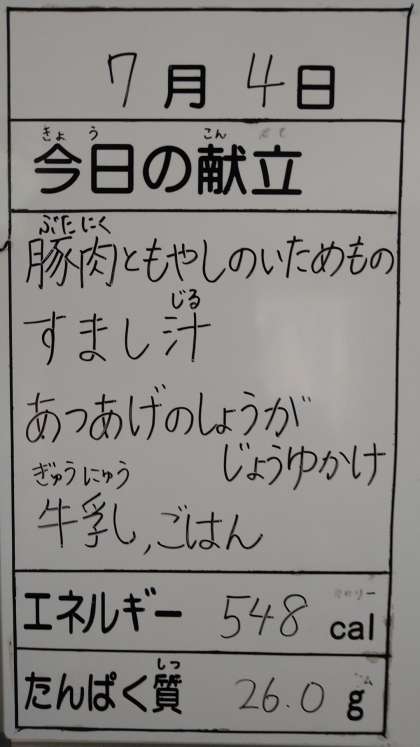 7月4日
きょう こん
今日の献立
ぶたにく
豚肉ともやしのいためもの
じる
すまし汁
あつあげのしょうが
じょうゆかけ
ぎゅうにゅう
牛乳し,ごはん
エネルギー 548 cal
しつ
たんぱく質 26.0 g